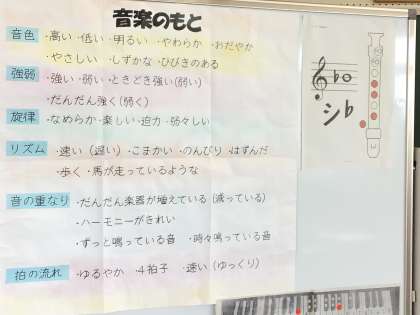 音楽のもと
音色 ・高い ・低い ・明るい ・やわらか ・おだやか
・やさしい ・しずかな ・ひびきのある
強弱 ・強い ・弱い ・ときどき強い(弱い)
・だんだん強く(弱く)
旋律 ・なめらか ・楽しい ・迫力 ・弱々しい
リズム ・速い (遅い) ・こまかい ・のんびり ・はずんだ
・歩く ・馬が走っているような
音の重なり ・だんだん楽器が増えている(減っている)
・ハーモニーがきれい
・ずっと鳴っている音 ・時々鳴っている音
拍の流れ ・ゆるやか ・4拍子 ・速い (ゆっくり)
シ♭